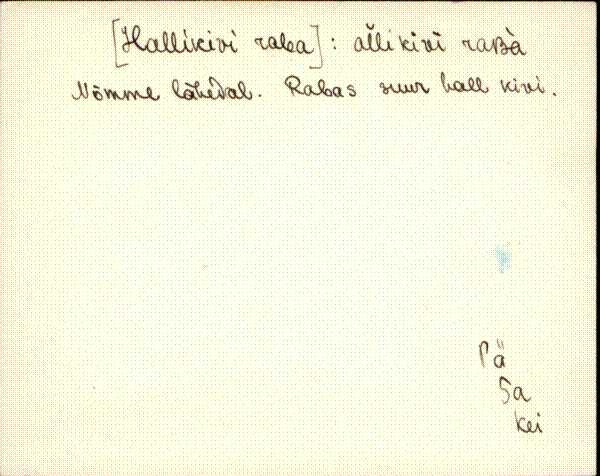 [Hallikivi raba] : al̆likivi raʙà
Nõmme lähedal. Rabas suur hall kivi.
Pä
Sa
Kei